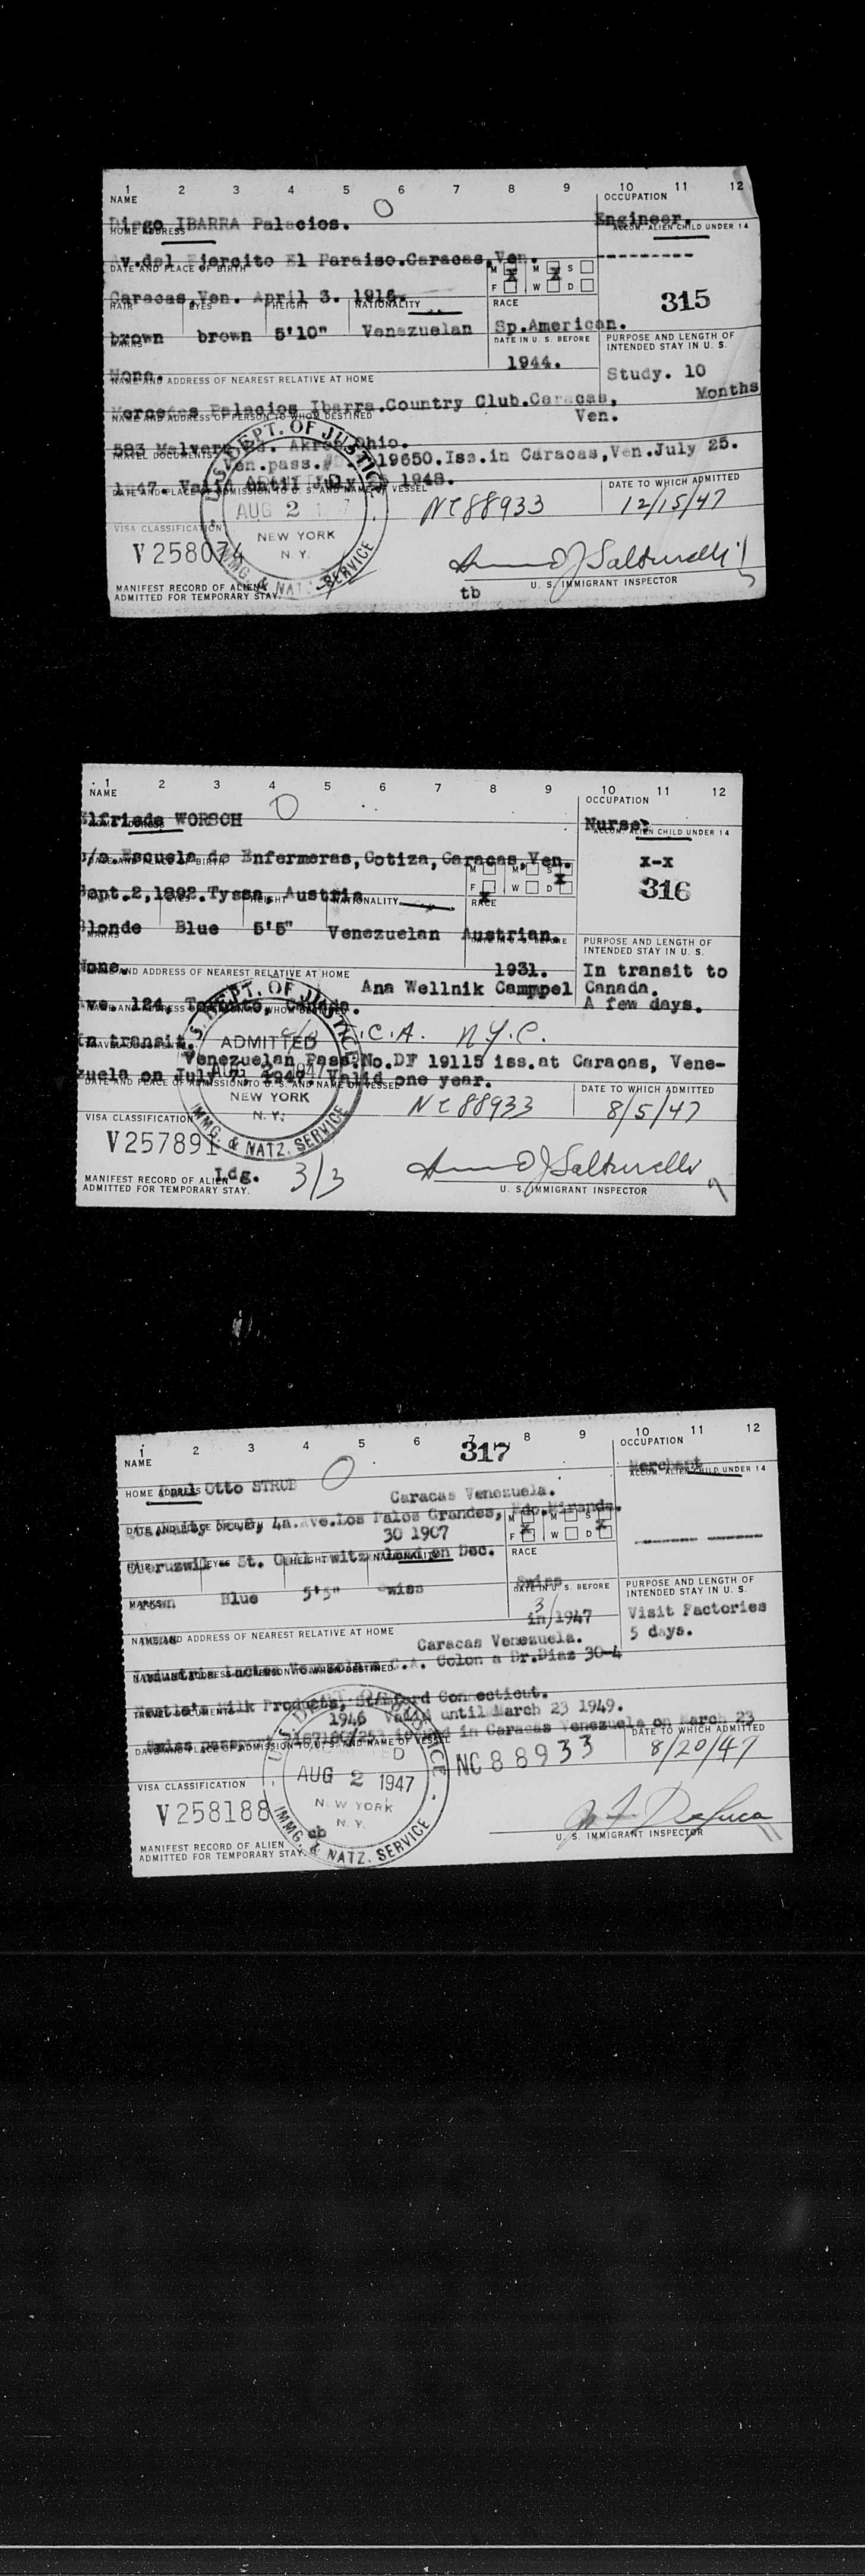 1 2 3 4 5 6 7 8 9 10 11 12
NAME OCCUPATION
Diego IBARRA Palacios. Engineer.
HOME ADDRESS ACCOM. ALIEN CHILD UNDER 14
Av.del Ejercito El Paraiso.Caracas,Ven. ---------
DATE AND PLACE OF BIRTH M X M X S
F W D
Caracas,Ven. April 3. 1916. 315
HAIR EYES HEIGHT NATIONALITY RACE
brown brown 5'10" Venezuelan Sp.American.
MARKS DATE IN U. S. BEFORE PURPOSE AND LENGTH OF INTENDED STAY IN U. S.
None. 1944. Study. 10 Months
NAME AND ADDRESS OF NEAREST RELATIVE AT HOME
Mercedes Palacios Ibarra.Country Club.Caracas, Ven.
NAME AND ADDRESS OF PERSON TO WHOM DESTINED
593 Malvern Rd. Akron Ohio.
TRAVEL DOCUMENTS
Ven.pass.# 19650.Iss.in Caracas,Ven.July 25.
1947. Valid until July 1948.
DATE AND PLACE OF ADMISSION TO U. S. AND NAME OF VESSEL DATE TO WHICH ADMITTED
U. S. DEPT. OF JUSTICE
AUG 2
NEW YORK
N. Y.
IMMG. & NATZ. SERVICE
NC88933 12/15/47
VISA CLASSIFICATION
V258074
U. S. IMMIGRANT INSPECTOR
tb
MANIFEST RECORD OF ALIEN
ADMITTED FOR TEMPORARY STAY.
1 2 3 4 5 6 7 8 9 10 11 12
NAME OCCUPATION
Elfriede WORSCH Nurse
HOME ADDRESS ACCOM. ALIEN CHILD UNDER 14
c/o.Escuela de Enfermeras,Cotiza,Caracas,Ven. x-x
DATE AND PLACE OF BIRTH M M S X
F X W D
Sept.2,1892.Tyssa, Austria 316
HAIR EYES HEIGHT NATIONALITY RACE
Blonde Blue 5'5" Venezuelan Austrian.
MARKS DATE IN U. S. BEFORE PURPOSE AND LENGTH OF INTENDED STAY IN U. S.
None. 1931. In transit to
NAME AND ADDRESS OF NEAREST RELATIVE AT HOME
Ana Wellnik Camppel Canada.
Ave. 124, Toronto, Canada. A few days.
NAME AND ADDRESS OF PERSON TO WHOM DESTINED
In transit. C.A. N.Y.C.
TRAVEL DOCUMENTS
Venezuelan Pass.No.DF 19115 iss.at Caracas, Vene-
zuela on July 7, 1947, Valid one year.
DATE AND PLACE OF ADMISSION TO U. S. AND NAME OF VESSEL DATE TO WHICH ADMITTED
U. S. DEPT. OF JUSTICE
ADMITTED
NEW YORK
N. Y.
IMMG. & NATZ. SERVICE
NC88933 8/5/47
VISA CLASSIFICATION
V257891
Ldg. 3/3
U. S. IMMIGRANT INSPECTOR
MANIFEST RECORD OF ALIEN
ADMITTED FOR TEMPORARY STAY.
1 2 3 4 5 6 7 8 9 10 11 12
317
NAME OCCUPATION
Otto STRUB Merchant
HOME ADDRESS ACCOM. ALIEN CHILD UNDER 14
Caracas Venezuela.
4a.Ave.Los Palos Grandes, Edo.Miranda.
DATE AND PLACE OF BIRTH M M S X
F X W D
30 1907
St. on Dec.
HAIR EYES HEIGHT NATIONALITY RACE
Brown Blue 5'5" Swiss Swiss
MARKS DATE IN U. S. BEFORE PURPOSE AND LENGTH OF INTENDED STAY IN U. S.
3/ in/1947 Visit Factories
5 days.
NAME AND ADDRESS OF NEAREST RELATIVE AT HOME
Caracas Venezuela.
C.A. Colon a Dr.Diaz 30-4
NAME AND ADDRESS OF PERSON TO WHOM DESTINED
Milk Products, Stamford Connecticut.
TRAVEL DOCUMENTS
1946 Valid until March 23 1949.
Swiss passport issued in Caracas Venezuela on March 23
DATE AND PLACE OF ADMISSION TO U. S. AND NAME OF VESSEL DATE TO WHICH ADMITTED
U. S. DEPT. OF JUSTICE
AUG 2 1947
NEW YORK
N. Y.
IMMG. & NATZ. SERVICE
NC88933 8/20/47
VISA CLASSIFICATION
V258188
cb
U. S. IMMIGRANT INSPECTOR
MANIFEST RECORD OF ALIEN
ADMITTED FOR TEMPORARY STAY.